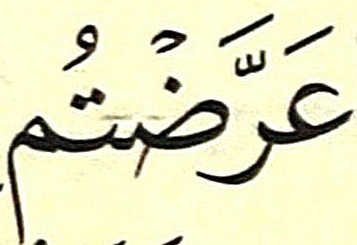 عَرَّضْتُم